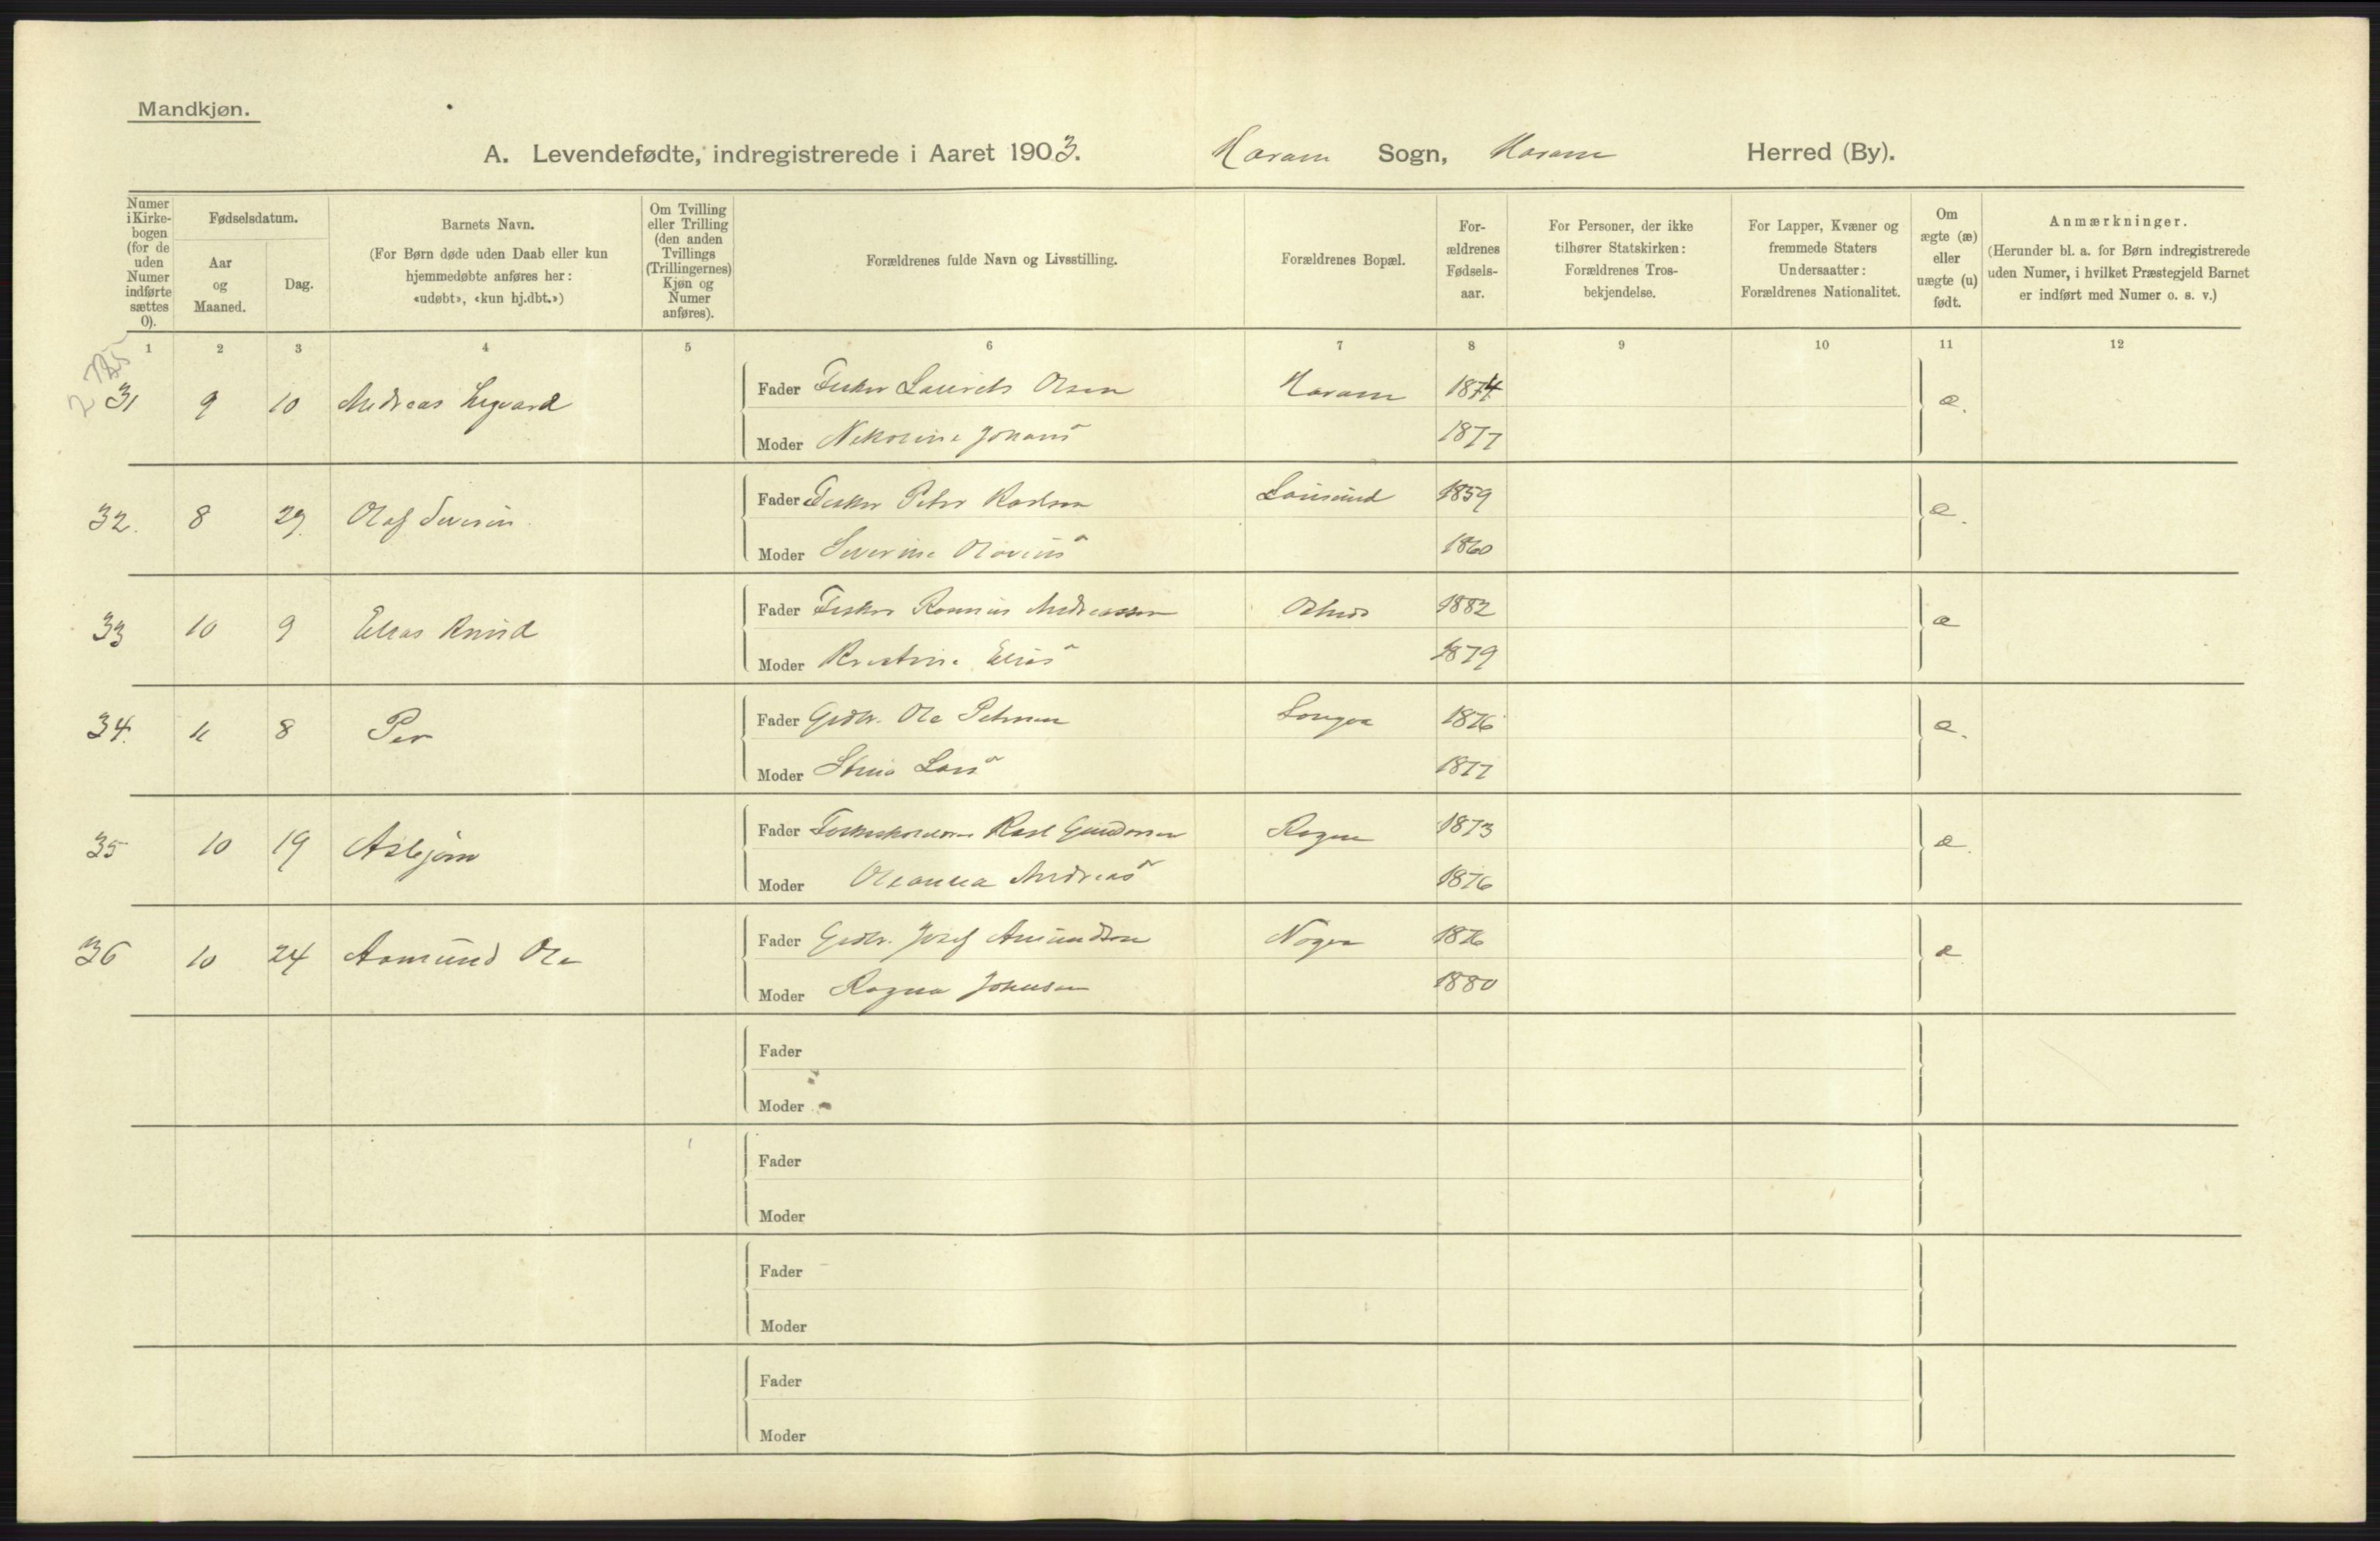 Mandkjøn.
A. Levendefødte, indregistrerede i Aaret 1903. Haram Sogn, Haram Herred (By).
Numer i Kirkebogen (for de uden Numer indførte sættes 0).
Fødselsdatum.
Aar og Maaned.
Dag.
Barnets Navn.
(For Børn døde uden Daab eller kun hjemmedøbte anføres her: «udøbt», «kun hj.dbt.»)
Om Tvilling eller Trilling (den anden Tvillings (Trillingernes) Kjøn og Numer anføres).
Forældrenes fulde Navn og Livsstilling.
Forældrenes Bopæl.
Forældrenes Fødselsaar.
For Personer, der ikke tilhører Statskirken: Forældrenes Trosbekjendelse.
For Lapper, Kvæner og fremmede Staters Undersaatter: Forældrenes Nationalitet.
Om ægte (æ) eller uægte (u) født.
Anmærkninger.
(Herunder bl. a. for Børn indregistrerede uden Numer, i hvilket Præstegjeld Barnet er indført med Numer o. s. v.)
1 2 3 4 5 6 7 8 9 10 11 12
31 9 10 Andreas Fader Fisker Laurits Olsen Haram 1874 æ.
Moder Nikoline Johans 1877
32. 8 29. Olaf Severin. Fader Fisker Peter Karlsen Lausund 1859 æ.
Moder Severine Olavius 1860
33 10 9 Elias Knud Fader Fisker Rasmus Andreassen 1882 æ
Moder Kristine Elias 1879
34. 11 8 Per Fader Grdbr. Ole Petersen Longva 1876 æ.
Moder Stina Lars 1877
35 10 19 Asbjørn Fader Karl Gundersen Rogne 1873 æ.
Moder Oleanna Andreas 1876
36 10 24 Aamund Ole Fader Grdbr. Josef Amundsen Nogva 1876 æ
Moder Ragna Johnsen 1880
Fader
Moder
Fader
Moder
Fader
Moder
Fader
Moder